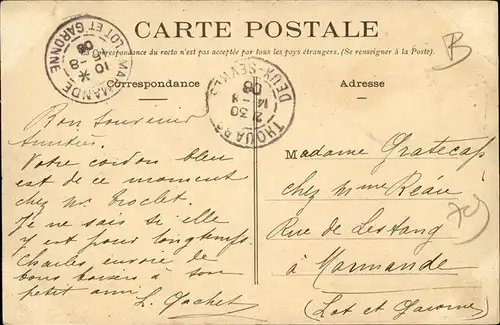 CARTE POSTALE
La Correspondance du recto n'est pas acceptée par tous les pays étrangers. (Se renseigner à la Poste)
B
MARMANDE
LOT ET GARONNE
THOUARS
DEUX-SEVRES
Correspondance
Adresse
Bon souvenir
Amitiés
Votre cordon bleu
est de ce moment
chez Mr Trochet.
Je ne sais si elle
y est pour longtemps.
Charles envoie de
bons baisers à son
petit ami
L. Gachet
Madame Gratecap
chez Mme Réau
Rue de Lestang
à Marmande
(Lot et Garonne)